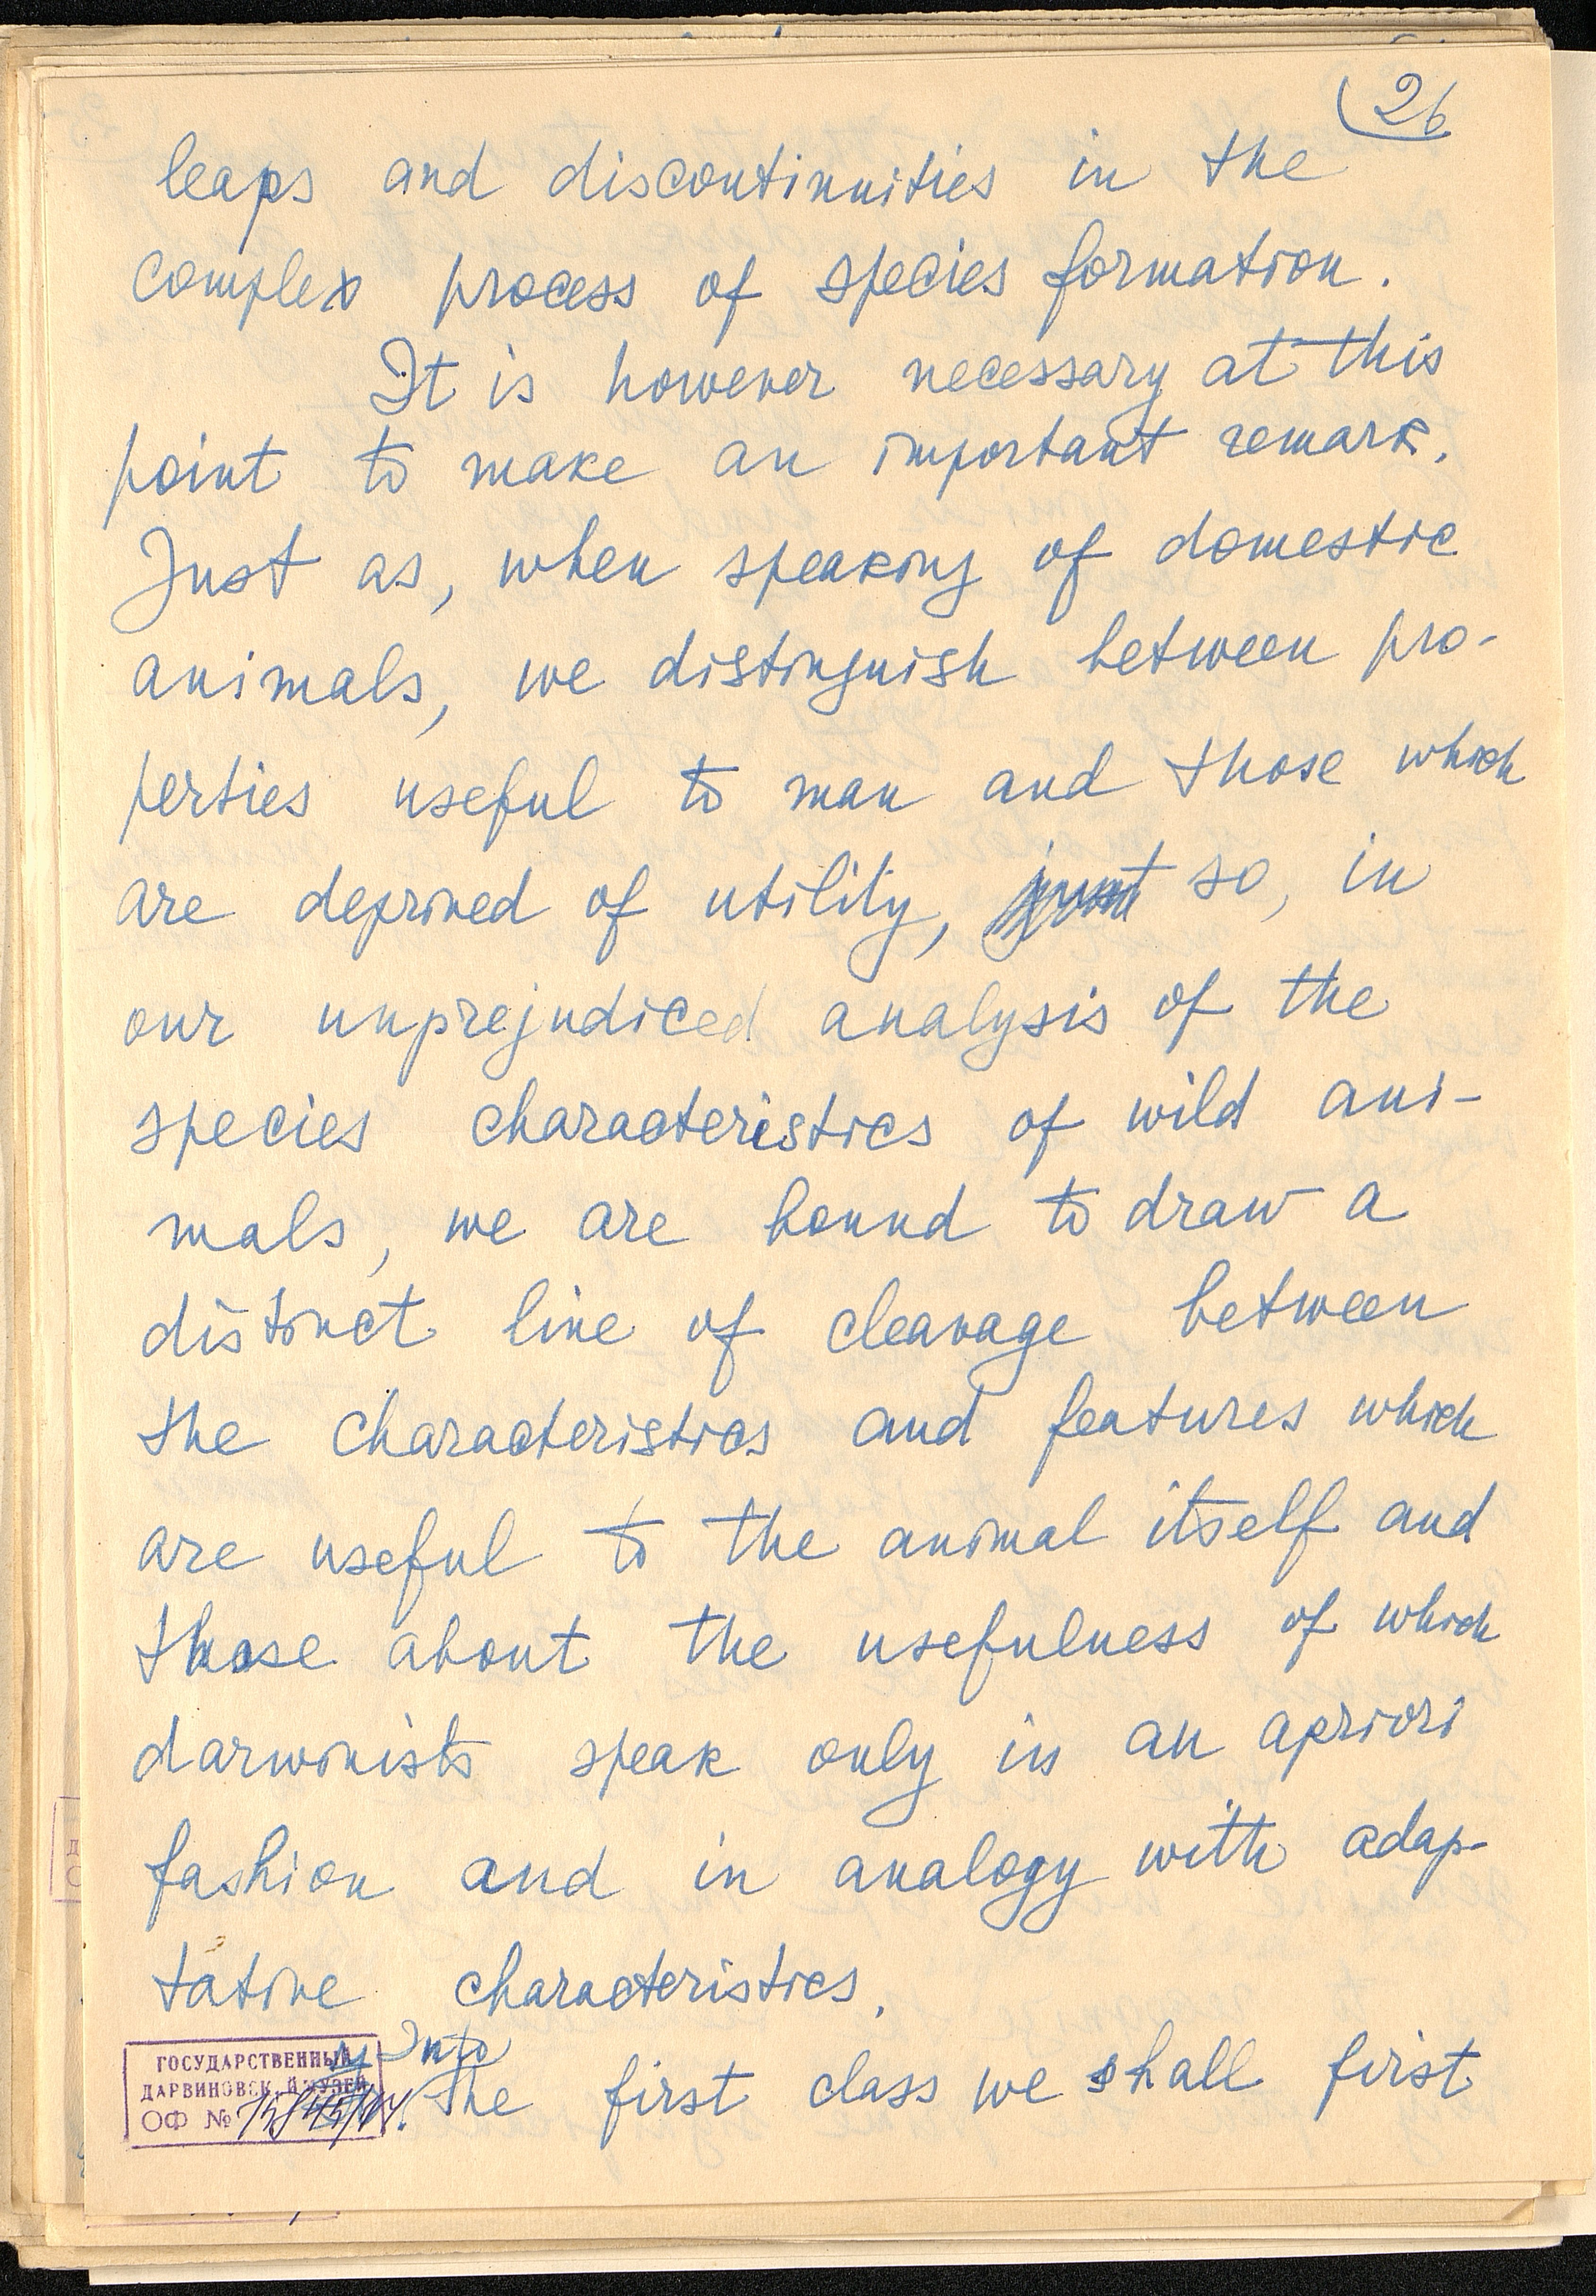 26
leaps and discontinuities in the
complex process of species formation.
It is however necessary at this
point to make an important remark.
Just as, when speaking of domestic
animals, we distinguish between pro-
perties useful to man and those which
are deprived of utility, just so, in
our unprejudiced analysis of the
species characteristics of wild ani-
mals, we are bound to draw a
distinct line of cleavage between
the characteristics and features which
are useful to the animal itself and
those about the usefulness of which
darwinists speak only in an apriori
fashion and in analogy with adap-
tative characteristics.
Into
the first class we shall first
ГОСУДАРСТВЕННЫЙ
ДАРВИНОВСК.Й МУЗЕЙ
ОФ №